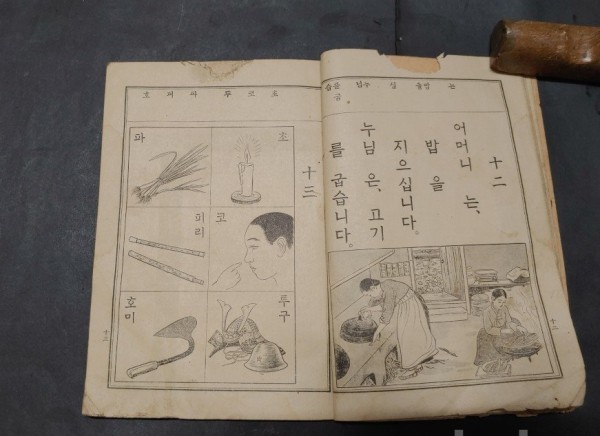 十二
어머니 는、
밥 을
지으십니다。
누님 은、고기
를 굽습니다。
十三
초
코
투구
파
피리
호미